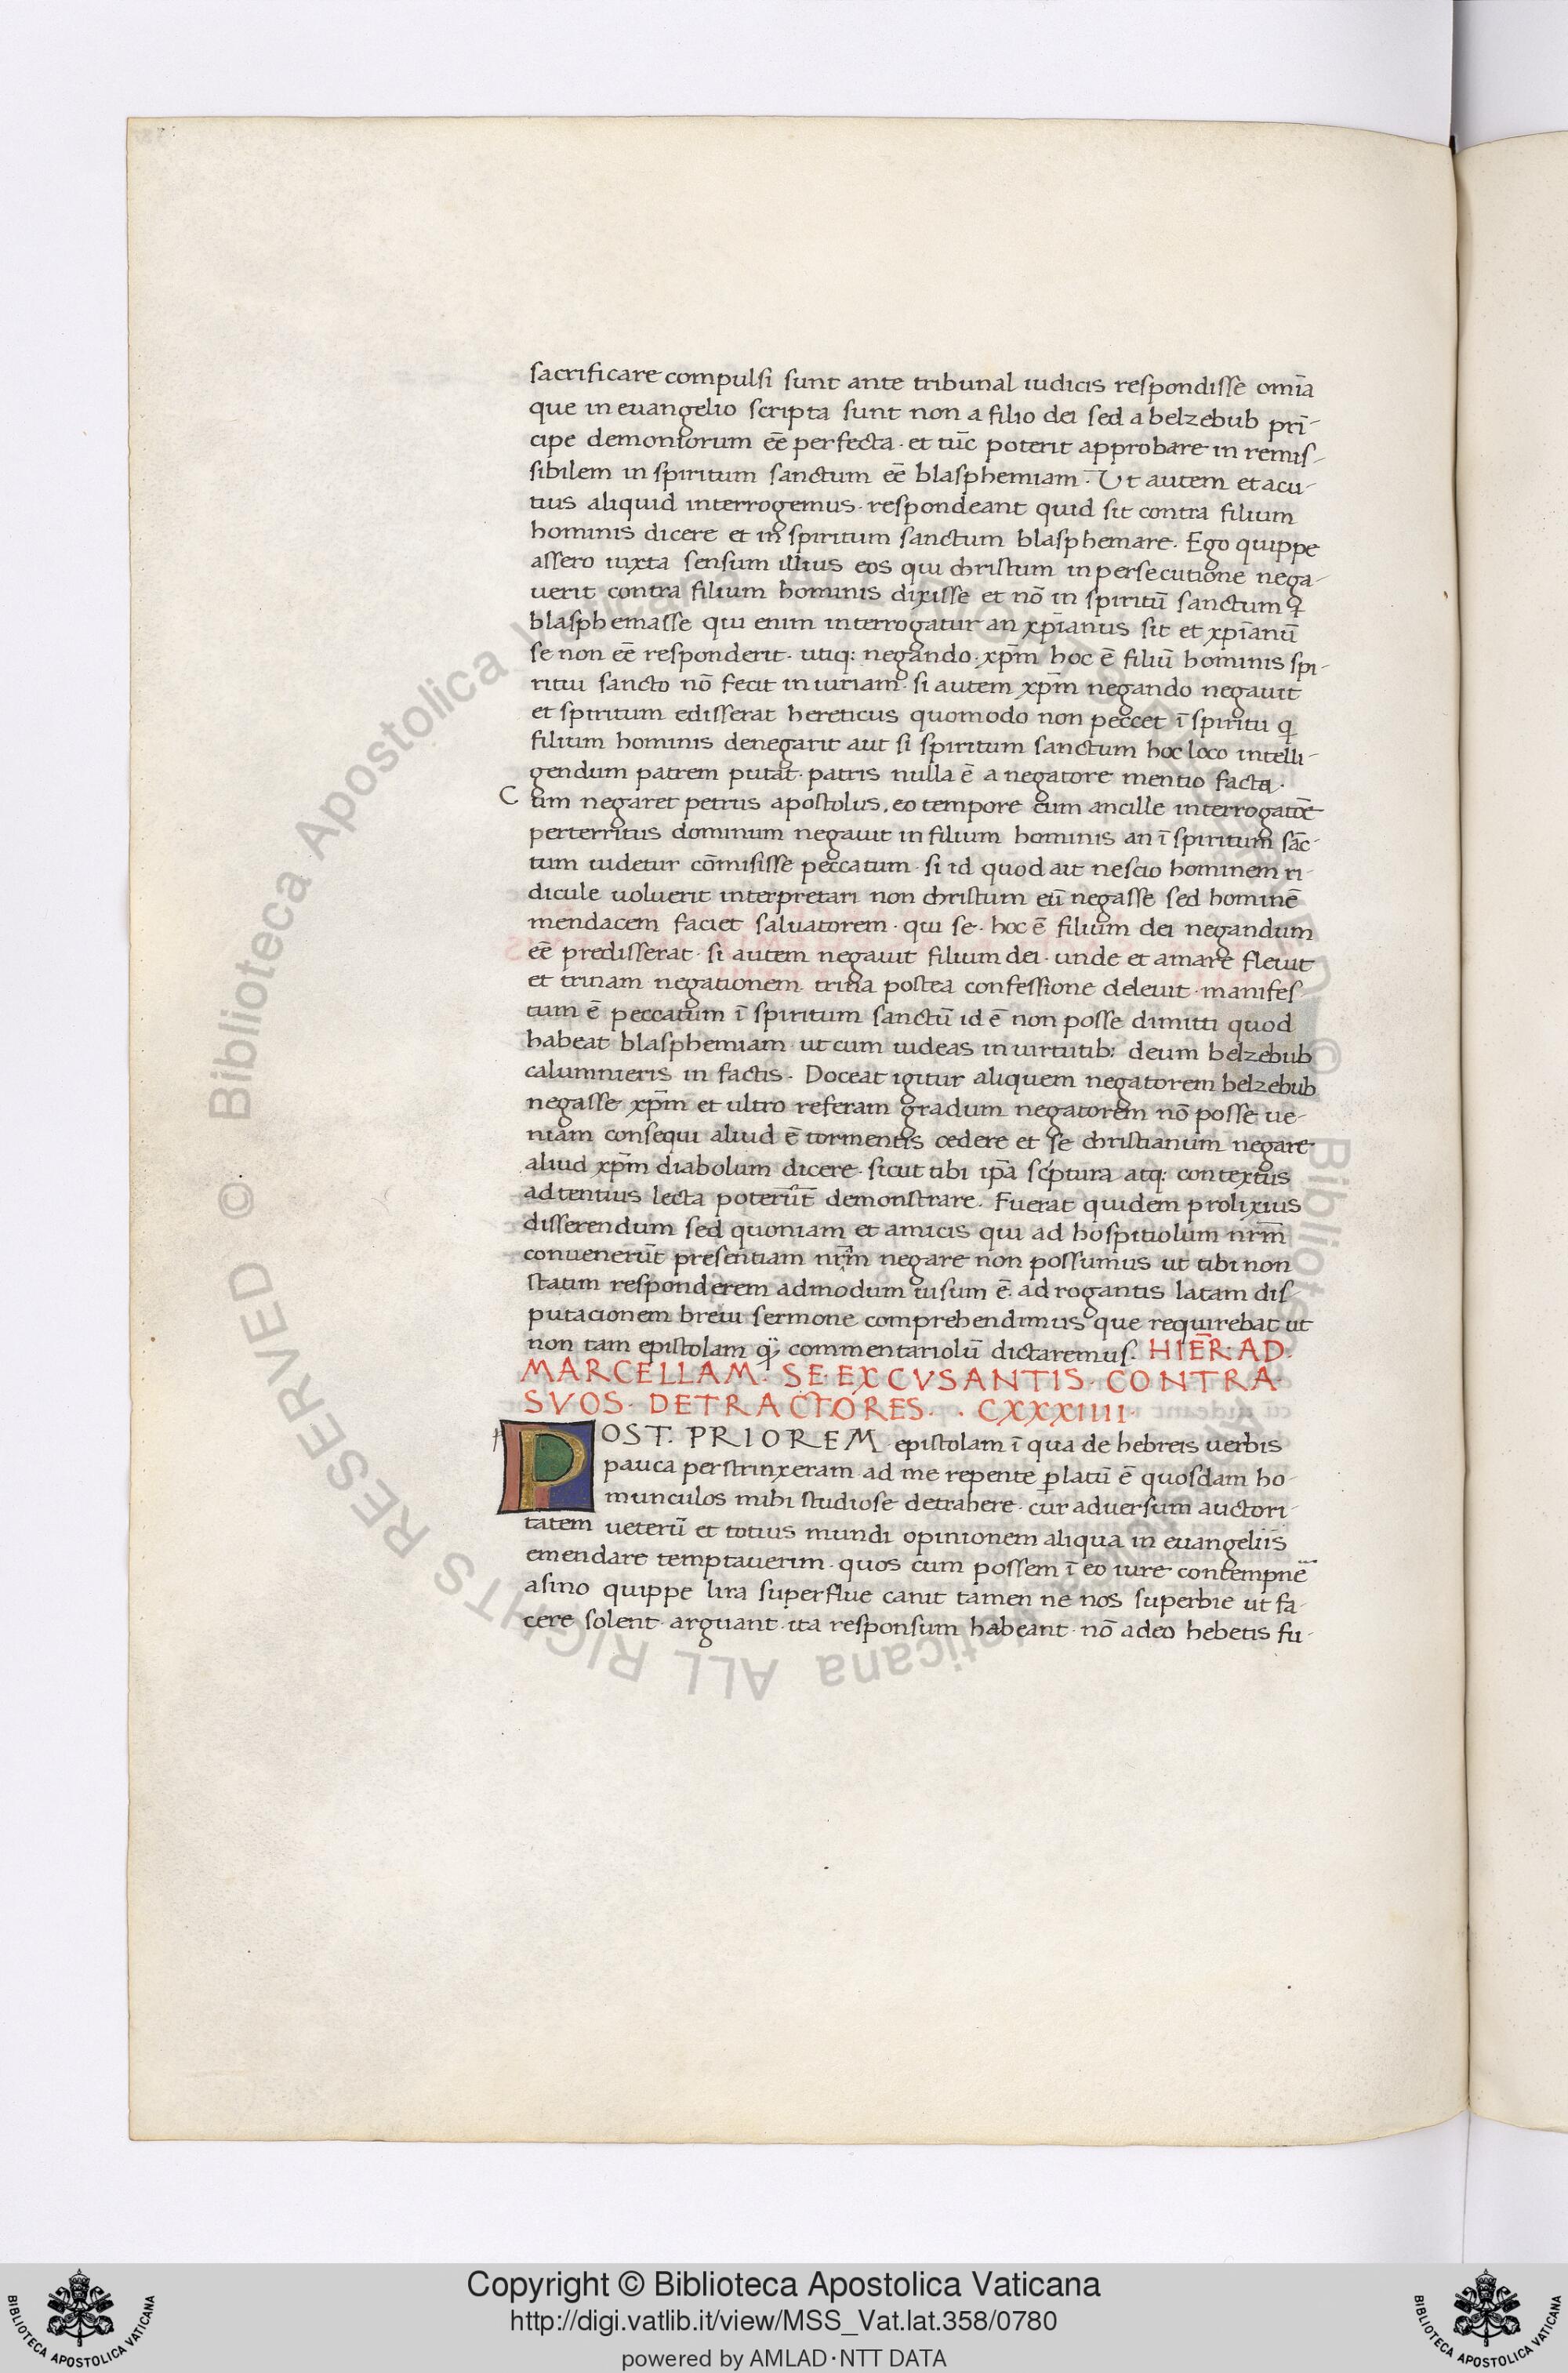 sacrificare compulsi sunt ante tribunal iudicis respondisse omīa
que in euangelio scripta sunt non a filio dei sed a belzebub prī-
cipe demoniorum eē perfecta · et tūc poterit approbare in remis-
sibilem in spiritum sanctum eē blasphemiam · Ut autem et acu-
tius aliquid interrogemus · respondeant quid sit contra filium
hominis dicere et in spiritum sanctum blasphemare · Ego quippe
assero iuxta sensum illius eos qui christum in persecutione nega-
uerit contra filium hominis dixisse et nō in spiritū sanctum
blasphemasse qui enim interrogatur an xpīanus sit et xpīanū
se non eē responderit · utiq: negando · xpm̄ hoc ē filiū hominis spi-
ritui sancto nō fecit in iuriam · si autem xpm̄ negando negauit
et spiritum edisserat hereticus quomodo non peccet ī spiritu q
filium hominis denegarit aut si spiritum sanctum hoc loco intelli-
gendum patrem putat · patris nulla ē a negatore mentio facta ·
C um negaret petrus apostolus, eo tempore cum ancille interrogatōe
perterritus dominum negauit in filium hominis an ī spiritum sāc-
tum uidetur cōmisisse peccatum · si id quod ait nescio hominem ri-
dicule uoluerit interpretari non christum eū negasse sed hominē
mendacem faciet saluatorem · qui se · hoc ē filium dei negandum
eē predisserat · si autem negauit filium dei · unde et amare fleuit
et trinam negationem trina postea confessione deleuit · manifes-
tum ē peccatum ī spiritum sanctū id ē non posse dimitti quod
habeat blasphemiam · ut cum uideas in uirtutib: deum belzebub
calumnieris in factis · Doceat igitur aliquem negatorem belzebub
negasse xpm̄ et ultro referam gradum negatorem nō posse ue-
niam consequi aliud ē tormentis cedere et se christianum negare
aliud xpm̄ diabolum dicere · sicut tibi ipā scptura atq: contextus
adtentius lecta poterūt demonstrare · Fuerat quidem prolixius
disserendum sed quoniam et amicis qui ad hospitiolum nrm̄
conuenerūt presentiam nrm̄ negare non possumus ut tibi non
statim responderem admodum uisum ē · adrogantis latam dis-
putacionem breui sermone comprehendimus que requirebat ut
non tam epistolam q̈ commentariolū dictaremus · HIER̄ · AD ·
MARCELLAM · SE · EXCVSANTIS · CONTRA ·
SVOS · DETRACTORES · · CXXXIIII ·
POST · PRIOREM epistolam ī qua de hebreis uerbis
pauca perstrinxeram ad me repente platū ē quosdam ho-
munculos mihi studiose detrahere · cur aduersum auctori-
tatem ueterū et totius mundi opinionem aliqua in euangeliis
emendare temptauerim · quos cum possem ī eo iure contempnē
asino quippe lira superflue canit tamen ne nos superbie ut fa-
cere solent · arguant · ita responsum habeant · nō adeo hebetis fu-
© Biblioteca Apostolica Vaticana ALL RIGHTS RESERVED
© Biblioteca Apostolica Vaticana ALL RIGHTS RESERVED
Copyright © Biblioteca Apostolica Vaticana
http://digi.vatlib.it/view/MSS_Vat.lat.358/0780
powered by AMLAD·NTT DATA
BIBLIOTECA APOSTOLICA VATICANA
BIBLIOTECA APOSTOLICA VATICANA